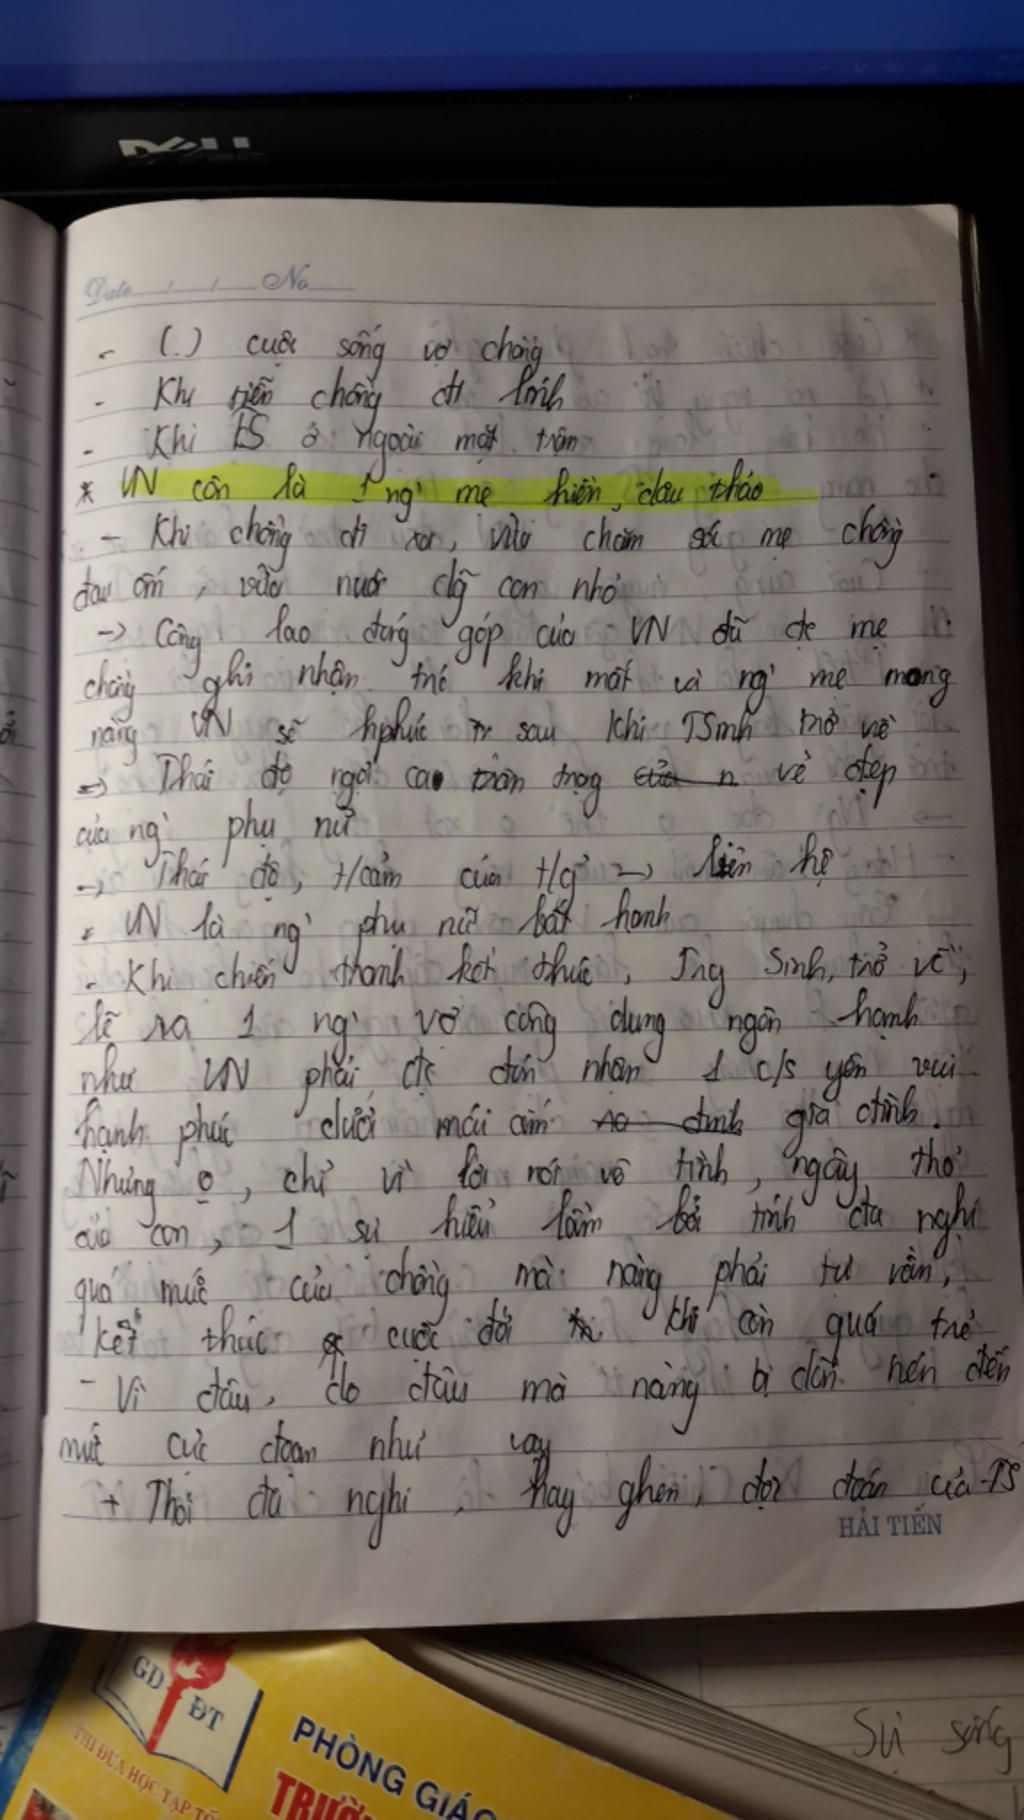 DELL
Date / / No
- (.) cuộc sống vợ chồng
- Khi tiễn chồng đi lính
- Khi TS ở ngoài mặt trận
* VN còn là 1 ng' mẹ hiền, dâu thảo
- Khi chồng đi xa, vừa chăm sóc mẹ chồng
đau ốm, vừa nuôi dỡ con nhỏ
-> Công lao đóng góp của VN đã đc mẹ
chồng ghi nhận trc khi mất và ng' mẹ mong
nàng VN sẽ hphúc sau khi TSinh trở về
-> Thái độ ngợi ca trân trọng vẻ đẹp
của ng' phụ nữ
-> Thái độ, t/cảm của t/g -> liên hệ
* VN là ng' phụ nữ bất hạnh
- Khi chiến tranh kết thúc, Trg Sinh trở về,
lẽ ra 1 ng' vợ công dung ngôn hạnh
như VN phải đc đón nhận 1 c/s yên vui
hạnh phúc dưới mái ấm gia đình.
Nhưng o, chỉ vì lời nói vô tình, ngây thơ
của con, 1 sự hiểu lầm bởi tính đa nghi
quá mức của chồng mà nàng phải tự vẫn,
kết thúc cuộc đời khi còn quá trẻ
- Vì đâu, do đâu mà nàng bị dồn nén đến
mức cực đoan như vậy
+ Thói đa nghi, hay ghen, độc đoán của TS
HẢI TIẾN
GD ĐT
THI ĐUA HỌC TẬP TỐ
PHÒNG GIÁO
TRƯỜ
Sự sống